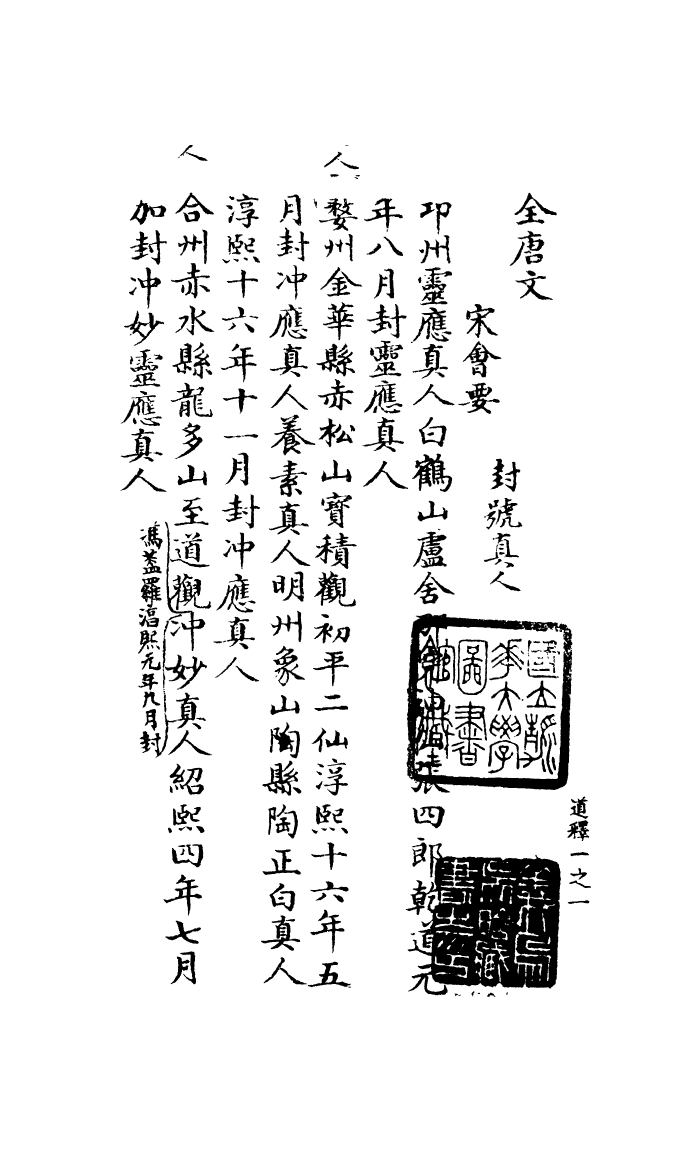 全唐文
宋會要
封號真人
卭州靈應真人白鶴山盧舍那 張四郎乾道元
年八月封靈應真人
婺州金華縣赤松山寶積觀初平二仙淳熙十六年五
月封冲應真人養素真人明州象山陶縣陶正白真人
淳熙十六年十一月封冲應真人
合州赤水縣龍多山至道觀冲妙真人紹熙四年七月
馮蓋羅淳熙元年九月封
加封冲妙靈應真人
人
人
國立清華大學圖書館藏
道釋一之一